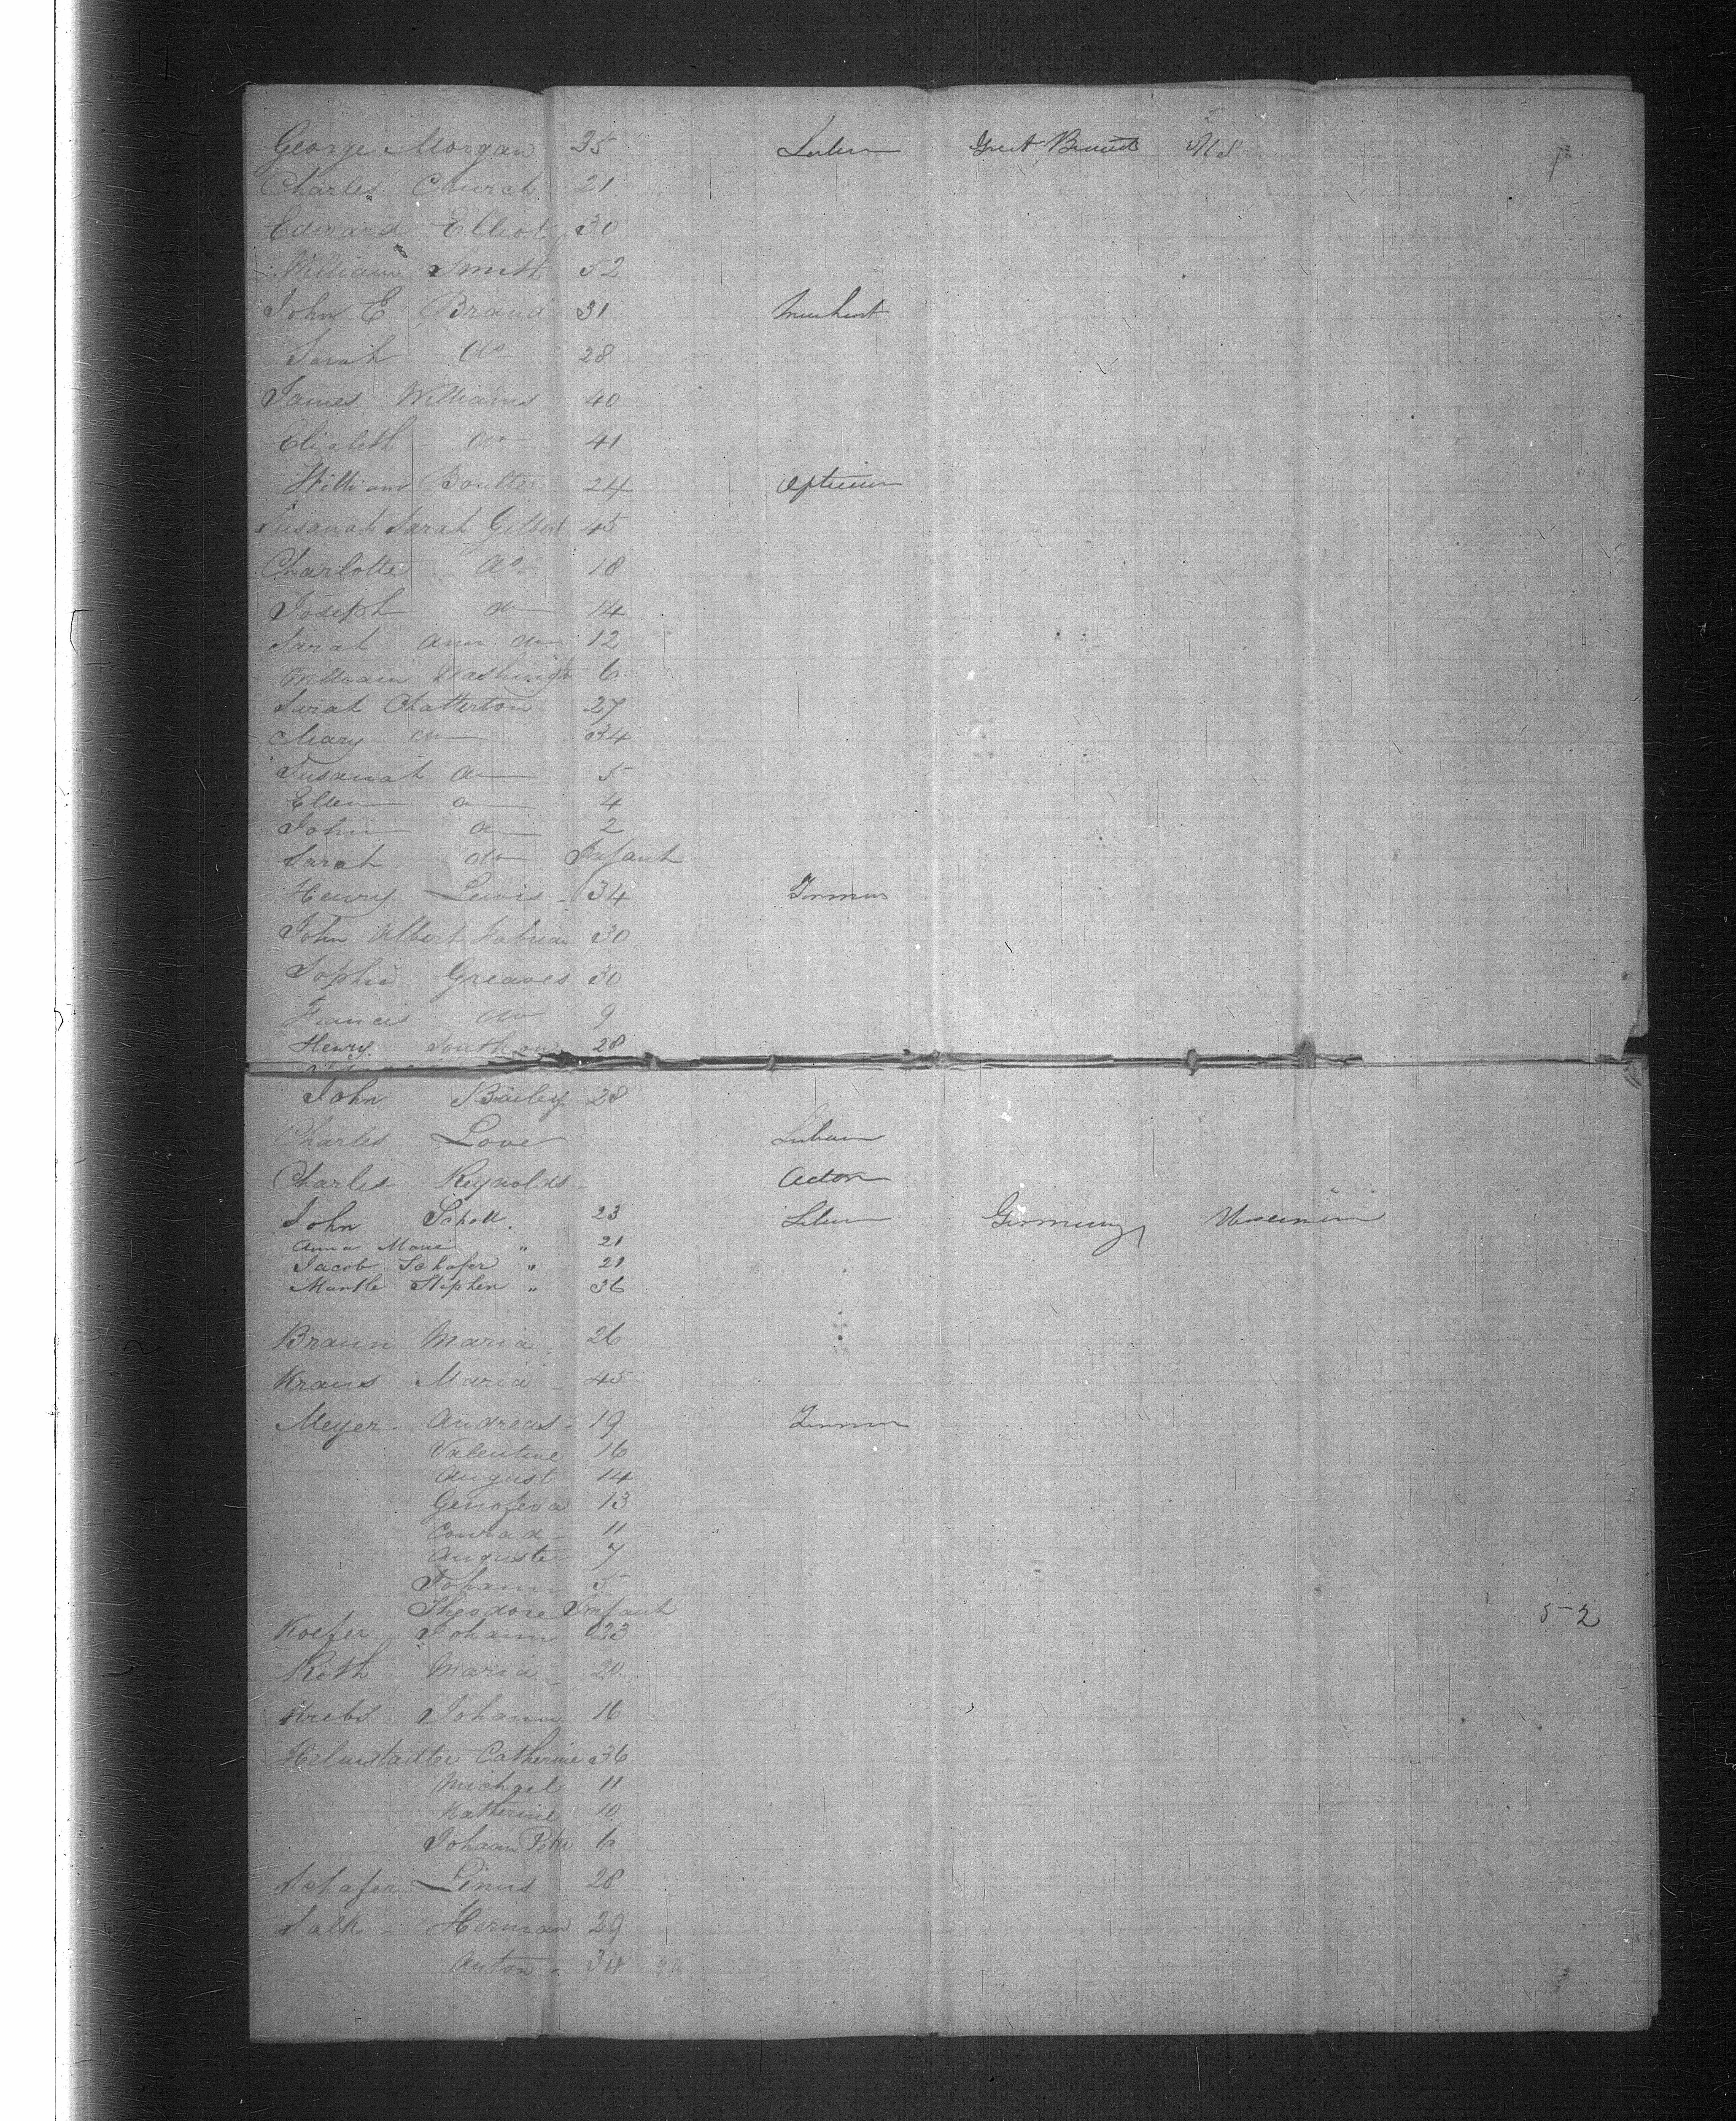 George Morgan 35 Great Britain U S
Charles Church 21
Edward Elliot 30
William Smith 52
John E Brand 31 Merchant
Sarah do 28
James Williams 40
Elizabeth do 41
William Boulter 24 Optician
Susanah Sarah Gilbert 45
Charlotte do 18
Joseph do 14
Sarah Ann do 12
William Washington 6
Sarah Chatterton 27
Mary do 34
Susanah do 5
Ellen do 4
John do 2
Sarah do Infant
Henry Lewis 34 Farmer
John Albert 30
Sophia Greaves 30
Francis do 9
Henry 28
John Bailey 28
Charles Love
Charles Reynolds Actor
John Scholl 23 Germany
Anna Marie " 21
Jacob Schafer " 21
Mantle Stephen " 36
Braun Maria 26
Kraus Maria 45
Meyer Andreas 19 Farmer
Valentine 16
August 14
Genofeva 13
Conrad 11
Auguste 7
Johann 5
Theodore Infant 52
Koefer Johann 23
Roth Maria 20
Krebs Johann 16
Helmstadter Catherine 36
Michael 11
Katherine 10
Johann Peter 6
Schafer Linus 28
Salk Herman 29
Anton 34